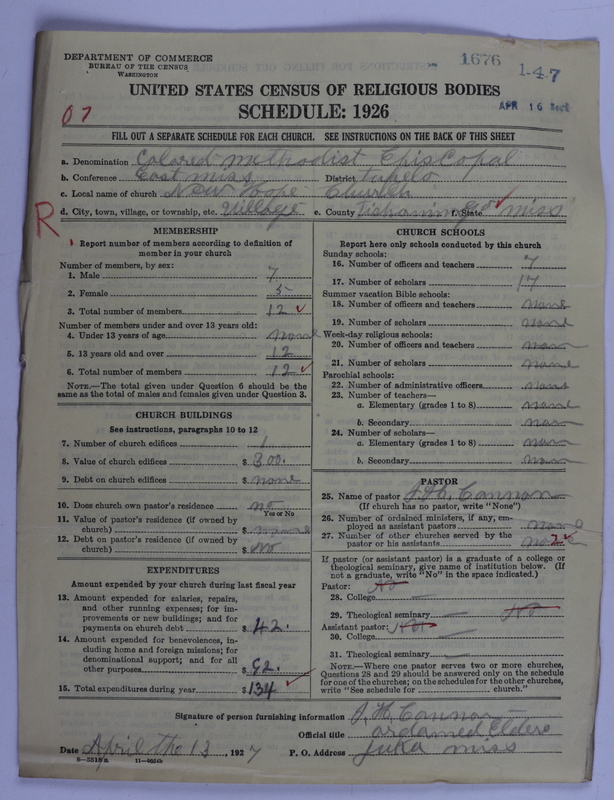 DEPARTMENT OF COMMERCE
BUREAU OF THE CENSUS
WASHINGTON
1676
1-4-7
UNITED STATES CENSUS OF RELIGIOUS BODIES
SCHEDULE: 1926
APR 16
07
FILL OUT A SEPARATE SCHEDULE FOR EACH CHURCH. SEE INSTRUCTIONS ON THE BACK OF THIS SHEET
a. Denomination Colored Methodist Episcopal
b. Conference East miss District Tupelo
c. Local name of church New Hope Church
d. City, town, village, or township, etc. Village e. County Tishomingo f. State miss
R
MEMBERSHIP
1 Report number of members according to definition of member in your church
Number of members, by sex:
1. Male 7
2. Female 5
3. Total number of members 12
Number of members under and over 13 years old:
4. Under 13 years of age none
5. 13 years old and over 12
6. Total number of members 12
NOTE.—The total given under Question 6 should be the same as the total of males and females given under Question 3.
CHURCH BUILDINGS
See instructions, paragraphs 10 to 12
7. Number of church edifices 1
8. Value of church edifices $ 300.
9. Debt on church edifices $ none
10. Does church own pastor's residence no
Yes or No
11. Value of pastor's residence (if owned by church) $ none
12. Debt on pastor's residence (if owned by church) $ No
EXPENDITURES
Amount expended by your church during last fiscal year
13. Amount expended for salaries, repairs, and other running expenses; for improvements or new buildings; and for payments on church debt $ 42.
14. Amount expended for benevolences, including home and foreign missions; for denominational support; and for all other purposes $ 92.
15. Total expenditures during year $ 134
CHURCH SCHOOLS
Report here only schools conducted by this church
Sunday schools:
16. Number of officers and teachers 7
17. Number of scholars 17
Summer vacation Bible schools:
18. Number of officers and teachers none
19. Number of scholars none
Week-day religious schools:
20. Number of officers and teachers none
21. Number of scholars none
Parochial schools:
22. Number of administrative officers none
23. Number of teachers—
a. Elementary (grades 1 to 8) none
b. Secondary none
24. Number of scholars—
a. Elementary (grades 1 to 8) none
b. Secondary none
PASTOR
25. Name of pastor J. H. Cannon
(If church has no pastor, write "None")
26. Number of ordained ministers, if any, employed as assistant pastors none
27. Number of other churches served by the pastor or his assistants 2
If pastor (or assistant pastor) is a graduate of a college or theological seminary, give name of institution below. (If not a graduate, write "No" in the space indicated.)
Pastor: No
28. College
29. Theological seminary No
Assistant pastor: No
30. College
31. Theological seminary
NOTE.—Where one pastor serves two or more churches, Questions 28 and 29 should be answered only on the schedule for one of the churches; on the schedules for the other churches, write "See schedule for ........ church."
Signature of person furnishing information J. H. Cannon
Official title ordained Elders
Date April the 13, 1927 P. O. Address Juka miss